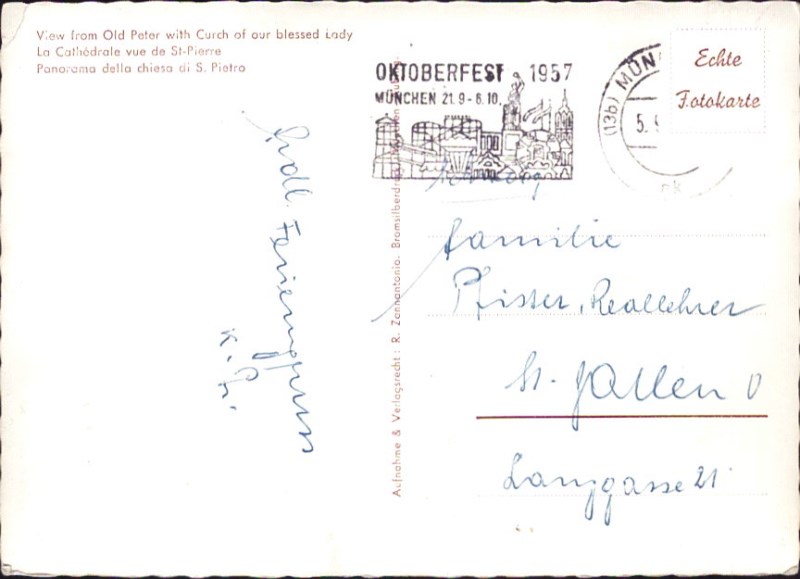 View from Old Peter with Curch of our blessed Lady
La Cathédrale vue de St-Pierre
Panorama della chiesa di S. Pietro
OKTOBERFEST 1957
MÜNCHEN 21.9-6.10.
(13b) MÜN
5.
Echte
Fotokarte
Aufnahme & Verlagsrecht: R. Zannantonio. Bromsilberdruck
Ferengruss
K. Pf.
Familie
Pfister, Reallehrer
St. Gallen O
Langgasse 21